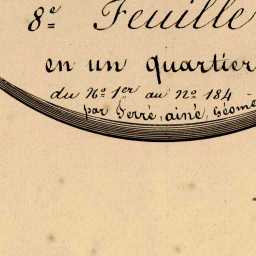 8e Feuille
en un quartier
du No. 1er au no. 184
par Ferré, ainé, Géome